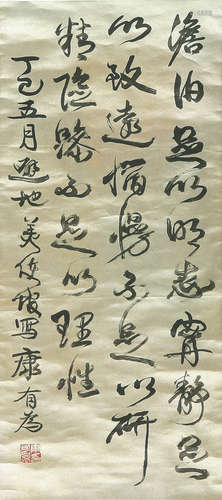 澹泊足以明志寧靜足
以致遠慆慢不足以研
精險躁不足以理性
丁巳五月避地美使館寫康有為